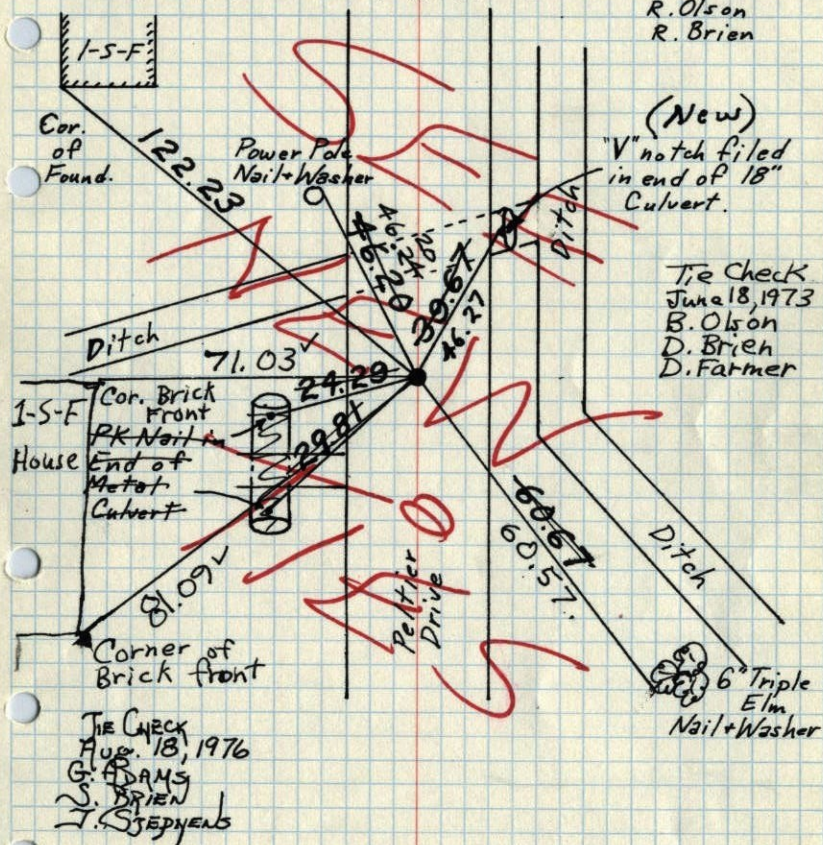 R. Olson
R. Brien
1-S-F
Cor.
of
Found.
122.23
Power Pole
Nail + Washer
(New)
"V" notch filed
in end of 18"
Culvert.
46.20
46.24
39.67
46.27
Ditch
Tie Check
June 18, 1973
B. Olson
D. Brien
D. Farmer
Ditch
71.03 ✓
24.29
1-S-F
House
Cor. Brick
Front
PK Nail in
End of
Metal
Culvert
29.81
81.09 ✓
Corner of
Brick front
Peltier
Drive
60.67
60.57
Ditch
6" Triple
Elm
Nail + Washer
TIE CHECK
AUG. 18, 1976
G. ADAMS
S. BRIEN
J. STEPHENS